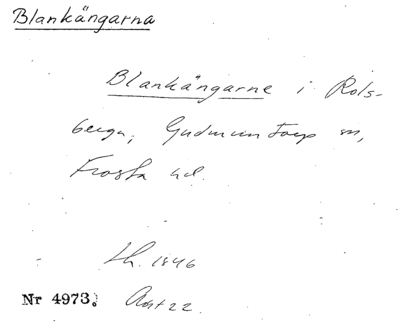 Blankängarna
Blankängarne i Rols-
berga, Gudmuntorp sn,
Frosta hd.
Lh. 1846
Nr 4973. Akt 22.